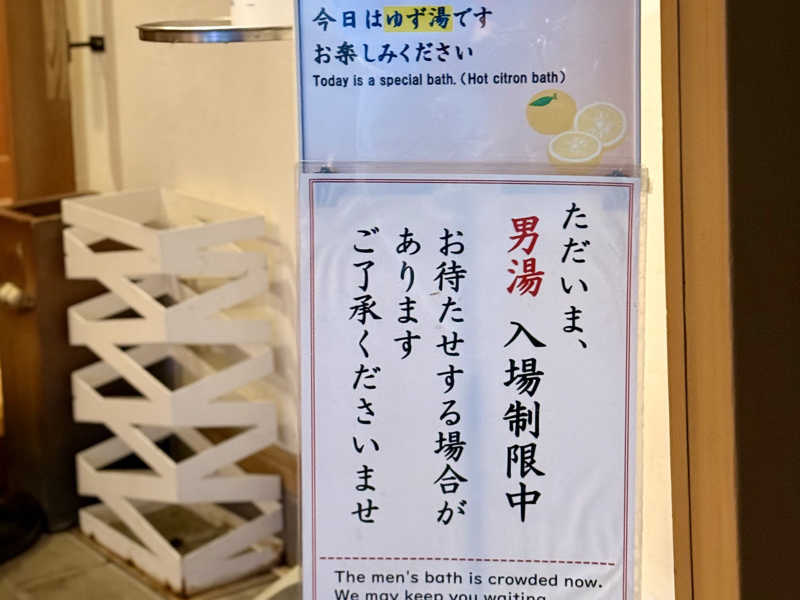 今日はゆず湯です
お楽しみください
Today is a special bath. (Hot citron bath)
ただいま、
男湯 入場制限中
お待たせする場合が
あります
ご了承くださいませ
The men's bath is crowded now.
We may keep you waiting.